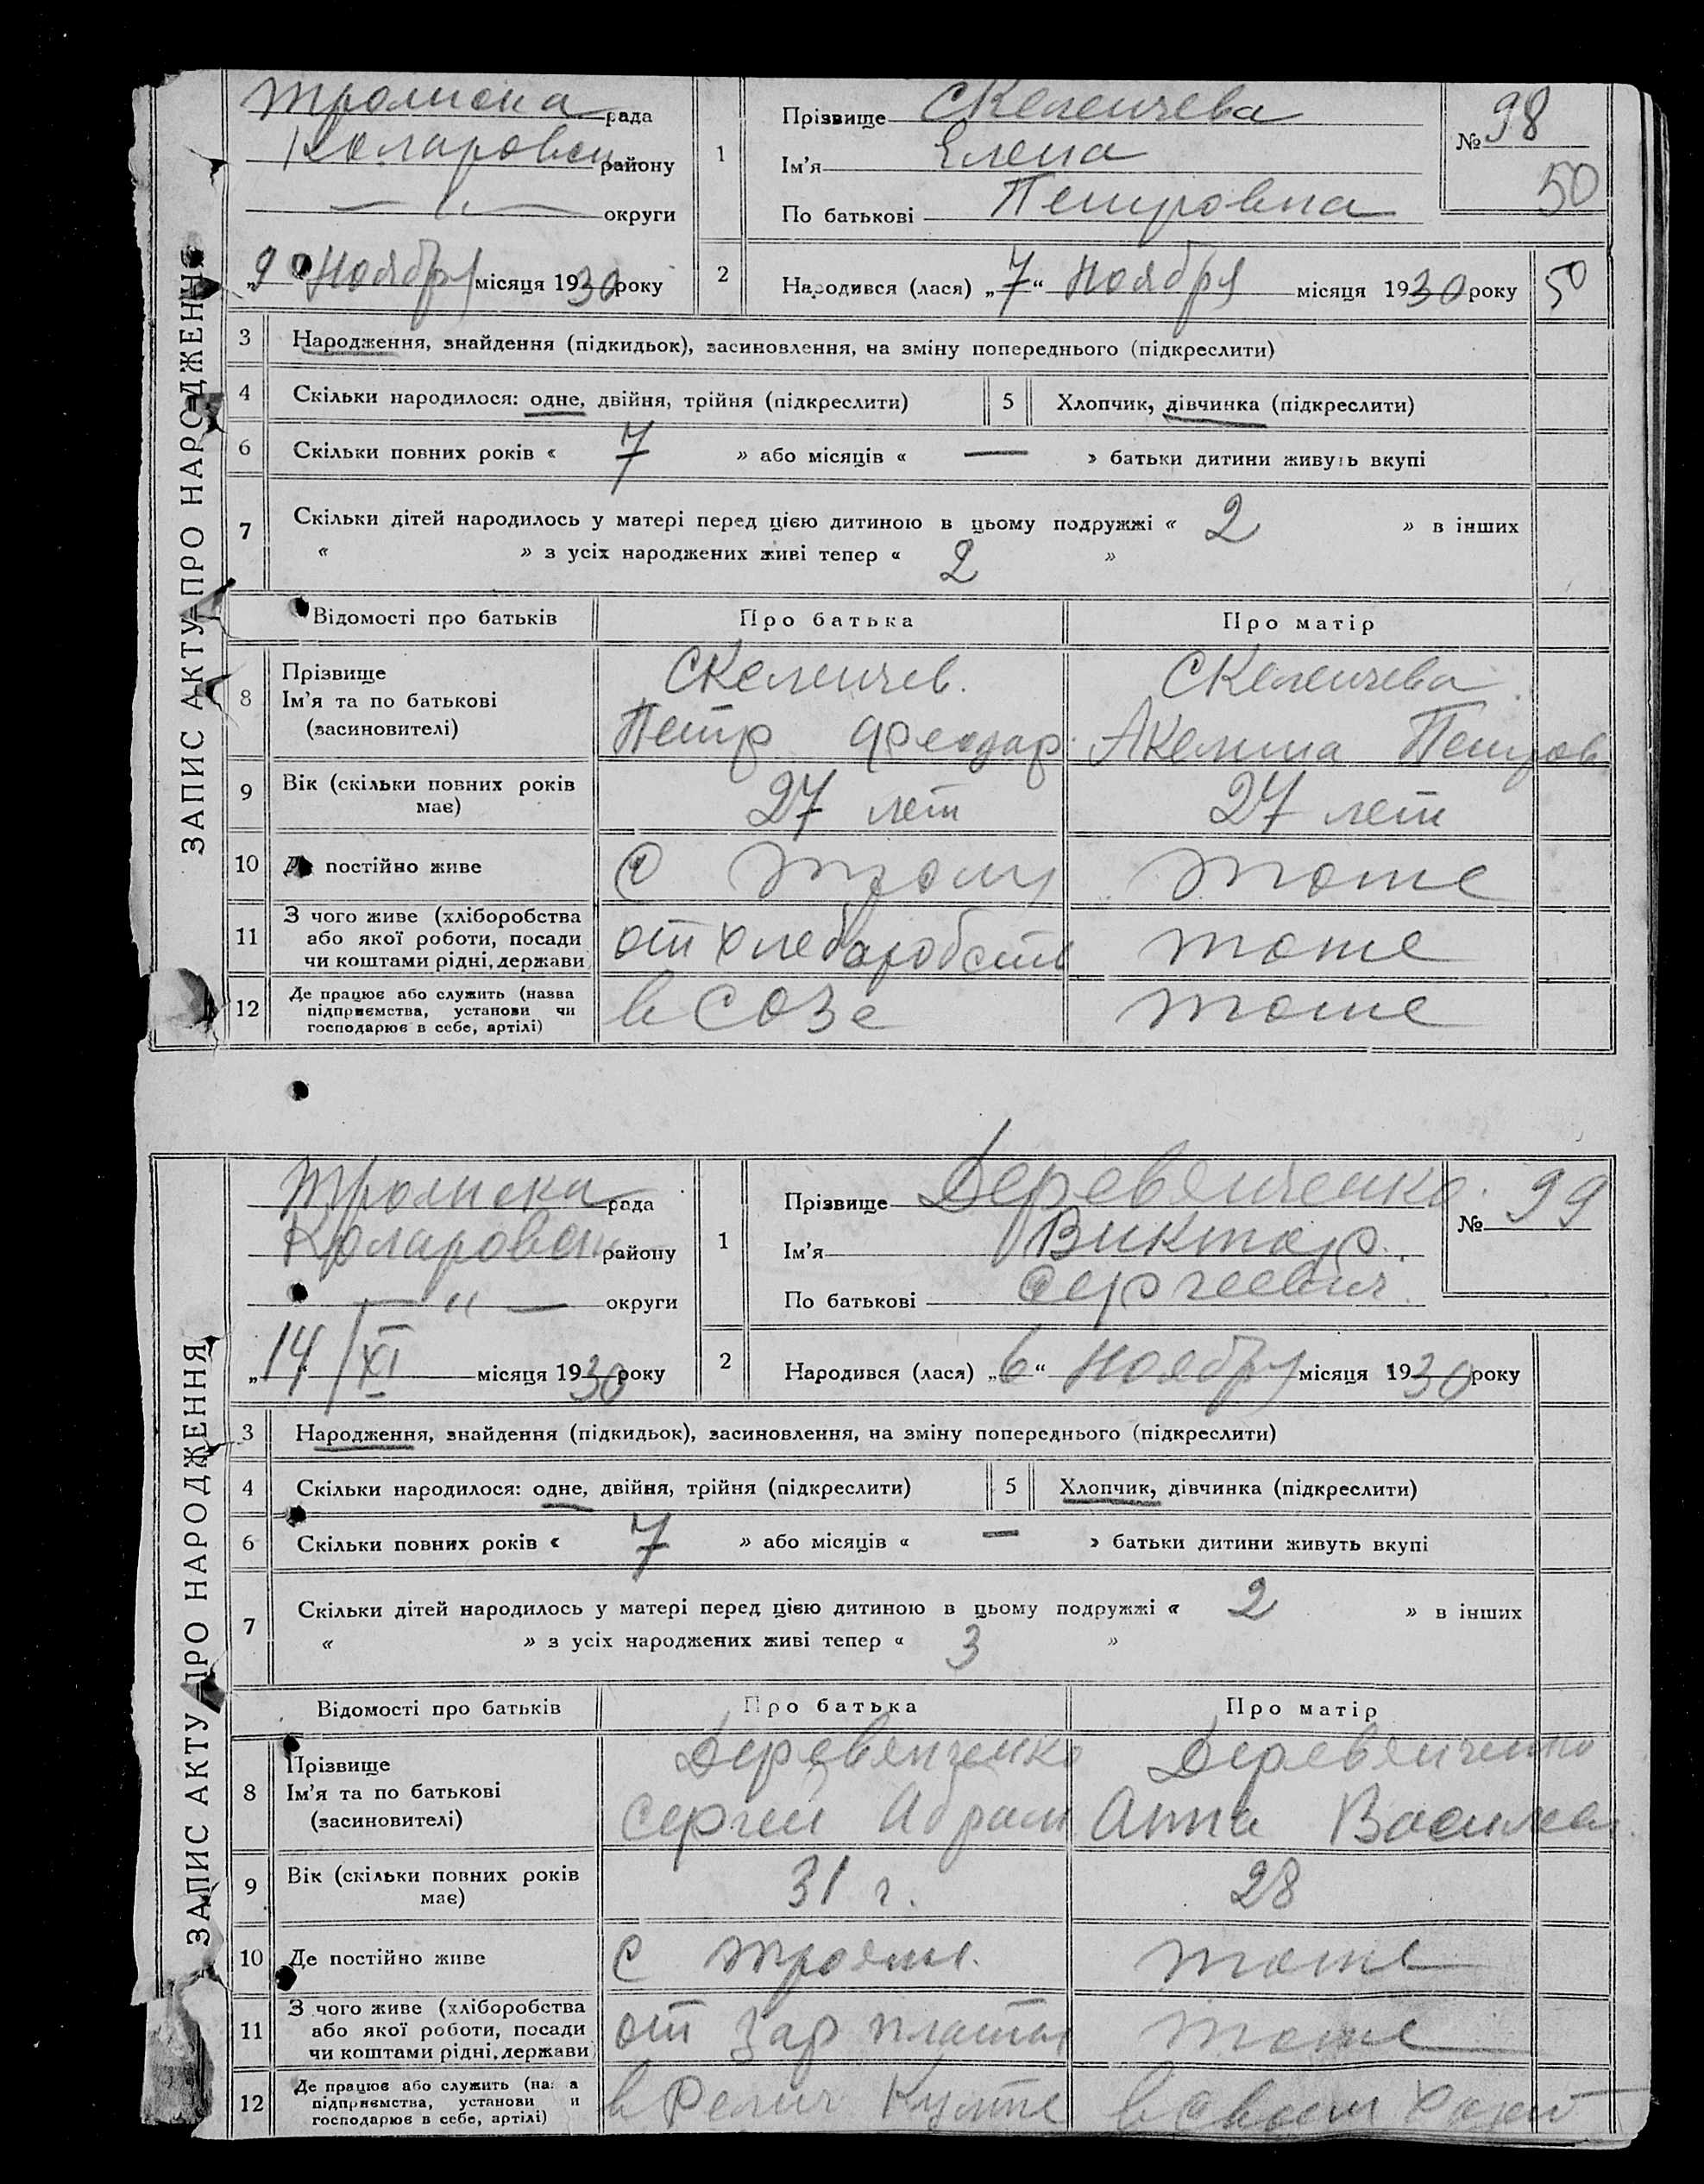 ЗАПИС АКТУ ПРО НАРОДЖЕННЯ
рада
району
— " — округи
1
Прізвище Скеленчева
Ім'я Елена
По батькові Петровна
№ 98
50
„9 Ноября місяця 1930 року
2
Народився (лася) „7“ Ноября місяця 1930 року
50
3 Народження, знайдення (підкидьок), засиновлення, на зміну попереднього (підкреслити)
4 Скільки народилося: одне, двійня, трійня (підкреслити) 5 Хлопчик, дівчинка (підкреслити)
6 Скільки повних років « 7 » або місяців « — » батьки дитини живуть вкупі
7 Скільки дітей народилось у матері перед цією дитиною в цьому подружжі « 2 » в інших
« » з усіх народжених живі тепер « 2 »
Відомості про батьків Про батька Про матір
8 Прізвище Скеленчев. Скеленчева
Ім'я та по батькові Петр Феодор. Акелина Петров
(засиновителі)
9 Вік (скільки повних років 27 лет 27 лет
має)
10 Де постійно живе С тоже
З чого живе (хліборобства
11 або якої роботи, посади от хлебаробств тоже
чи коштами рідні, держави
Де працює або служить (назва
12 підприємства, установи чи в СОЗе тоже
господарює в себе, артілі)
ЗАПИС АКТУ ПРО НАРОДЖЕННЯ
рада
району
— " — округи
1
Прізвище Деревянченко.
Ім'я Виктор.
По батькові Сергеевич.
№ 99
„14/XI місяця 1930 року
2
Народився (лася) „6“ Ноября місяця 1930 року
3 Народження, знайдення (підкидьок), засиновлення, на зміну попереднього (підкреслити)
4 Скільки народилося: одне, двійня, трійня (підкреслити) 5 Хлопчик, дівчинка (підкреслити)
6 Скільки повних років « 7 » або місяців « — » батьки дитини живуть вкупі
7 Скільки дітей народилось у матері перед цією дитиною в цьому подружжі « 2 » в інших
« » з усіх народжених живі тепер « 3 »
Відомості про батьків Про батька Про матір
8 Прізвище Деревянченко Деревянченко
Ім'я та по батькові Сергей Абрам Анна Василев
(засиновителі)
9 Вік (скільки повних років 31 г. 28
має)
10 Де постійно живе С Троян. тоже
З чого живе (хліборобства
11 або якої роботи, посади от зар платы тоже
чи коштами рідні, держави
Де працює або служить
12 підприємства, установи в в своем
господарює в себе, артілі)